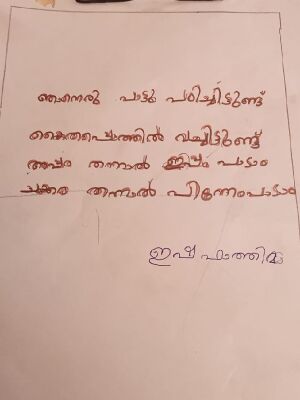 ഞാനൊരു പാട്ടു പഠിച്ചിട്ടുണ്ട്
കൈതപ്പൊത്തിൽ വച്ചിട്ടുണ്ട്
അപ്പം തന്നാൽ ഇപ്പം പാടാം
ചക്കര തന്നാൽ പിന്നേംപാടാം
ഇഷ ഫാത്തിമ